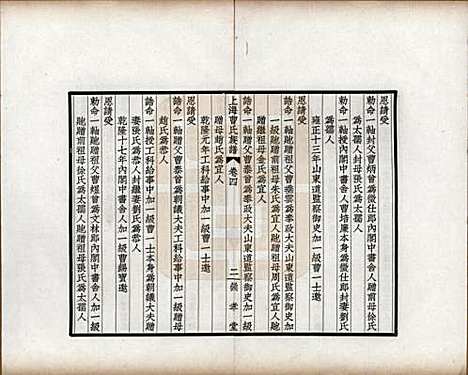 恩請受
勅命一軸封父曹炳曾爲徵仕郎内閣中書舍人贈前母徐氏
爲太孺人封母張氏爲太孺人
勅命一軸授内閣中書舍人曹培廉本身爲徵仕郎封妻劉氏
爲孺人
雍正十三年山東道監察御史加一級曹一士邀
恩請受
誥命一軸貤贈祖父曹垂雲爲奉政大夫山東道監察御史加
一級貤贈前祖母朱氏爲宜人貤贈祖母周氏爲宜人貤
贈繼祖母金氏爲宜人
誥命一軸贈父曹泰曾爲奉政大夫山東道監察御史加一級
贈母趙氏爲宜人
乾隆元年工科給事中加一級曹一士邀
上海曹氏族譜 卷四 二 崇孝堂
恩請受
誥命一軸贈父曹泰曾爲朝議大夫工科給事中加一級贈母
趙氏爲恭人
誥命一軸授工科給事中加一級曹一士本身爲朝議大夫贈
妻張氏爲恭人封繼妻劉氏爲恭人
乾隆十七年内閣中書舍人加一級曹錫寶邀
恩請受
勅命一軸貤贈祖父曹煜曾爲文林郎内閣中書舍人加一級
貤贈前祖母徐氏爲太孺人貤贈祖母張氏爲太孺人